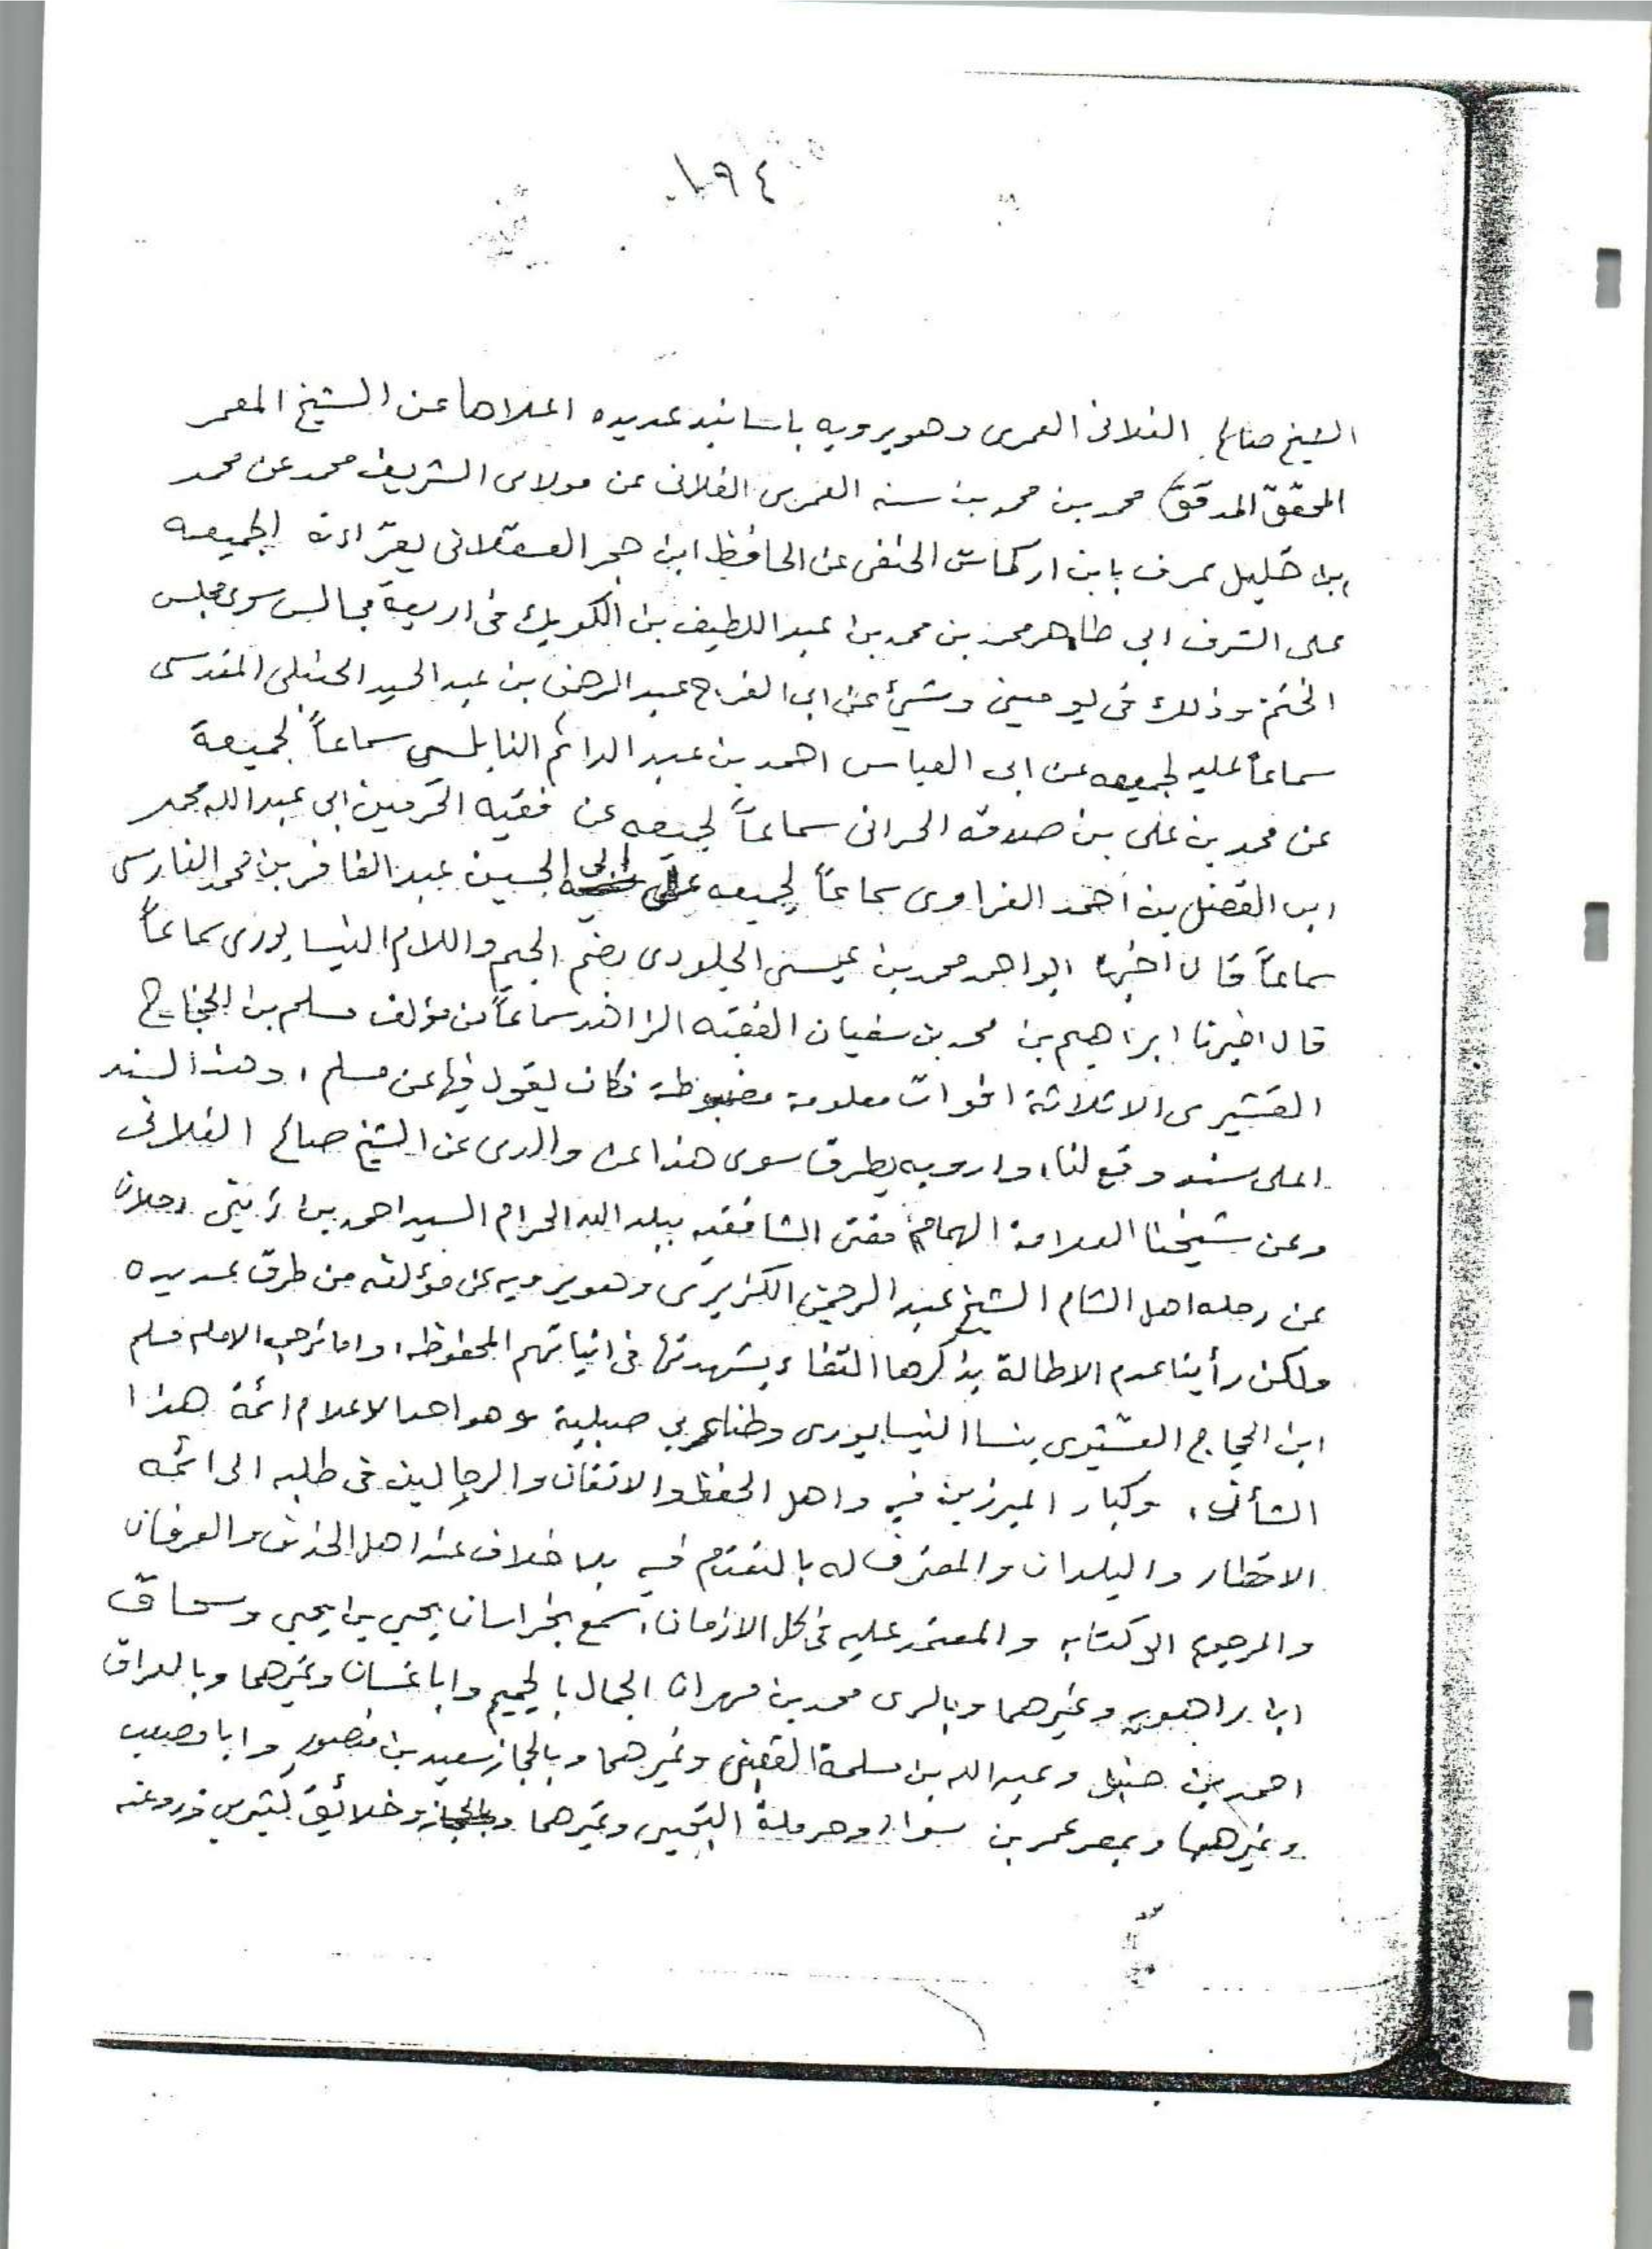 ١٩٤
الشيخ صالح الفلانى العمرى وهو يرويه باسانيد عديده اعلاها عن الشيخ المعمر
المحقق المدقق محمد بن محمد بن سنه العمرى الفلانى عن مولاى الشريف محمد عن محمد
ابن خليل عرف بابن اركماش الحنفى عن الحافظ ابن حجر العسقلانى بقراءته لجميعه
على الشرف ابى طاهر محمد بن محمد بن عبد اللطيف بن الكويك فى اربعة مجالس سوى مجلس
الختم وذلك فى يومين وشئ عن ابى الفرج عبد الرحمن بن عبد الحميد الحنبلى المقدسى
سماعاً عليه لجميعه عن ابى العباس احمد بن عبد الدائم النابلسى سماعاً لجميعة
عن محمد بن على بن صدقه الحرانى سماعاً لجميعه عن فقيه الحرمين ابى عبد الله محمد
ابن الفضل بن احمد الفراوى سماعاً لجميعه على ابى الحسين عبد الغافر بن محمد الفارسى
سماعاً قال اخبرنا ابو احمد محمد بن عيسى الجلودى بضم الجيم واللام النيسابورى سماعاً
قال اخبرنا ابراهيم بن محمد بن سفيان الفقيه الزاهد سماعاً من مؤلفه مسلم بن الحجاج
القشيرى الا ثلاثة افوات معلومة مضبوطة فكان يقول فيها عن مسلم، وهذا السند
اعلى سند وقع لنا، وارويه بطرق سوى هذا عن والدى عن الشيخ صالح الفلانى
وعن شيخنا العلامة الهمام مفتى الشافعيه ببلد الله الحرام السيد احمد بن زينى دحلان
عن رحلة اهل الشام الشيخ عبد الرحمن الكزبرى وهو يرويه عن مؤلفه من طرق عديده
ولكن رأينا عدم الاطالة بذكرها التفاء بشهرتها فى اثباتهم المحفوظه، واما ترجمة الامام مسلم
ابن الحجاج القشيرى نسبا النيسابورى وطنا عربي صبلية وهو احد الاعلام ائمة هذا
الشأن، وكبار المبرزين فيه واهل الحفظ والاتقان والرحالين فى طلبه الى ائمه
الاقطار والبلدان والمعترف له بالتقدم فيه بلا خلاف عند اهل الحذق والعرفان
والمرجوع الى كتابه والمعتمد عليه فى كل الازمان، سمع بخراسان يحيى بن يحيى وسحاق
ابن راهويه وغيرهما وبالرى محمد بن مهران الجمال بالجيم وابا غسان وغيرهما وبالعراق
احمد بن حنبل وعبد الله بن مسلمة القعنبى وغيرهما وبالحجاز سعيد بن منصور وابا مصعب
وغيرهما وبمصر عمر بن سواد وحرملة التجيبى وغيرهما وخلائق كثيرين وروى عنه